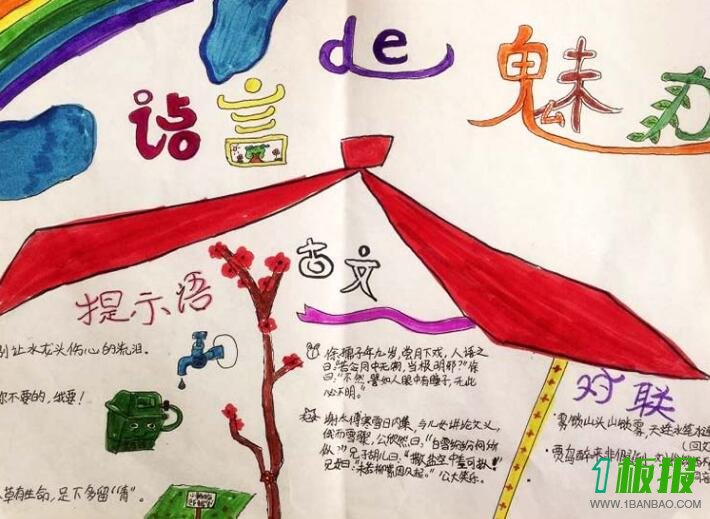 语言de魅力
提示语
古文
别让水龙头伤心的流泪。
你不要的,我要!
草有生命,足下多留“青”。
徐孺子年九岁,尝月下戏,人语之
曰:“若令月中无物,当极明邪?”徐
曰:“不然,譬如人眼中有瞳子,无此
必不明。”
谢太傅寒雪日内集,与儿女讲论文义,
俄而雪骤,公欣然曰:“白雪纷纷何所
似?”兄子胡儿曰:“撒盐空中差可拟。”
兄女曰:“未若柳絮因风起。”公大笑乐。
对联
雾锁山头山锁雾,天连水尾水连
(回文
1板报
WWW.1BANBAO.COM